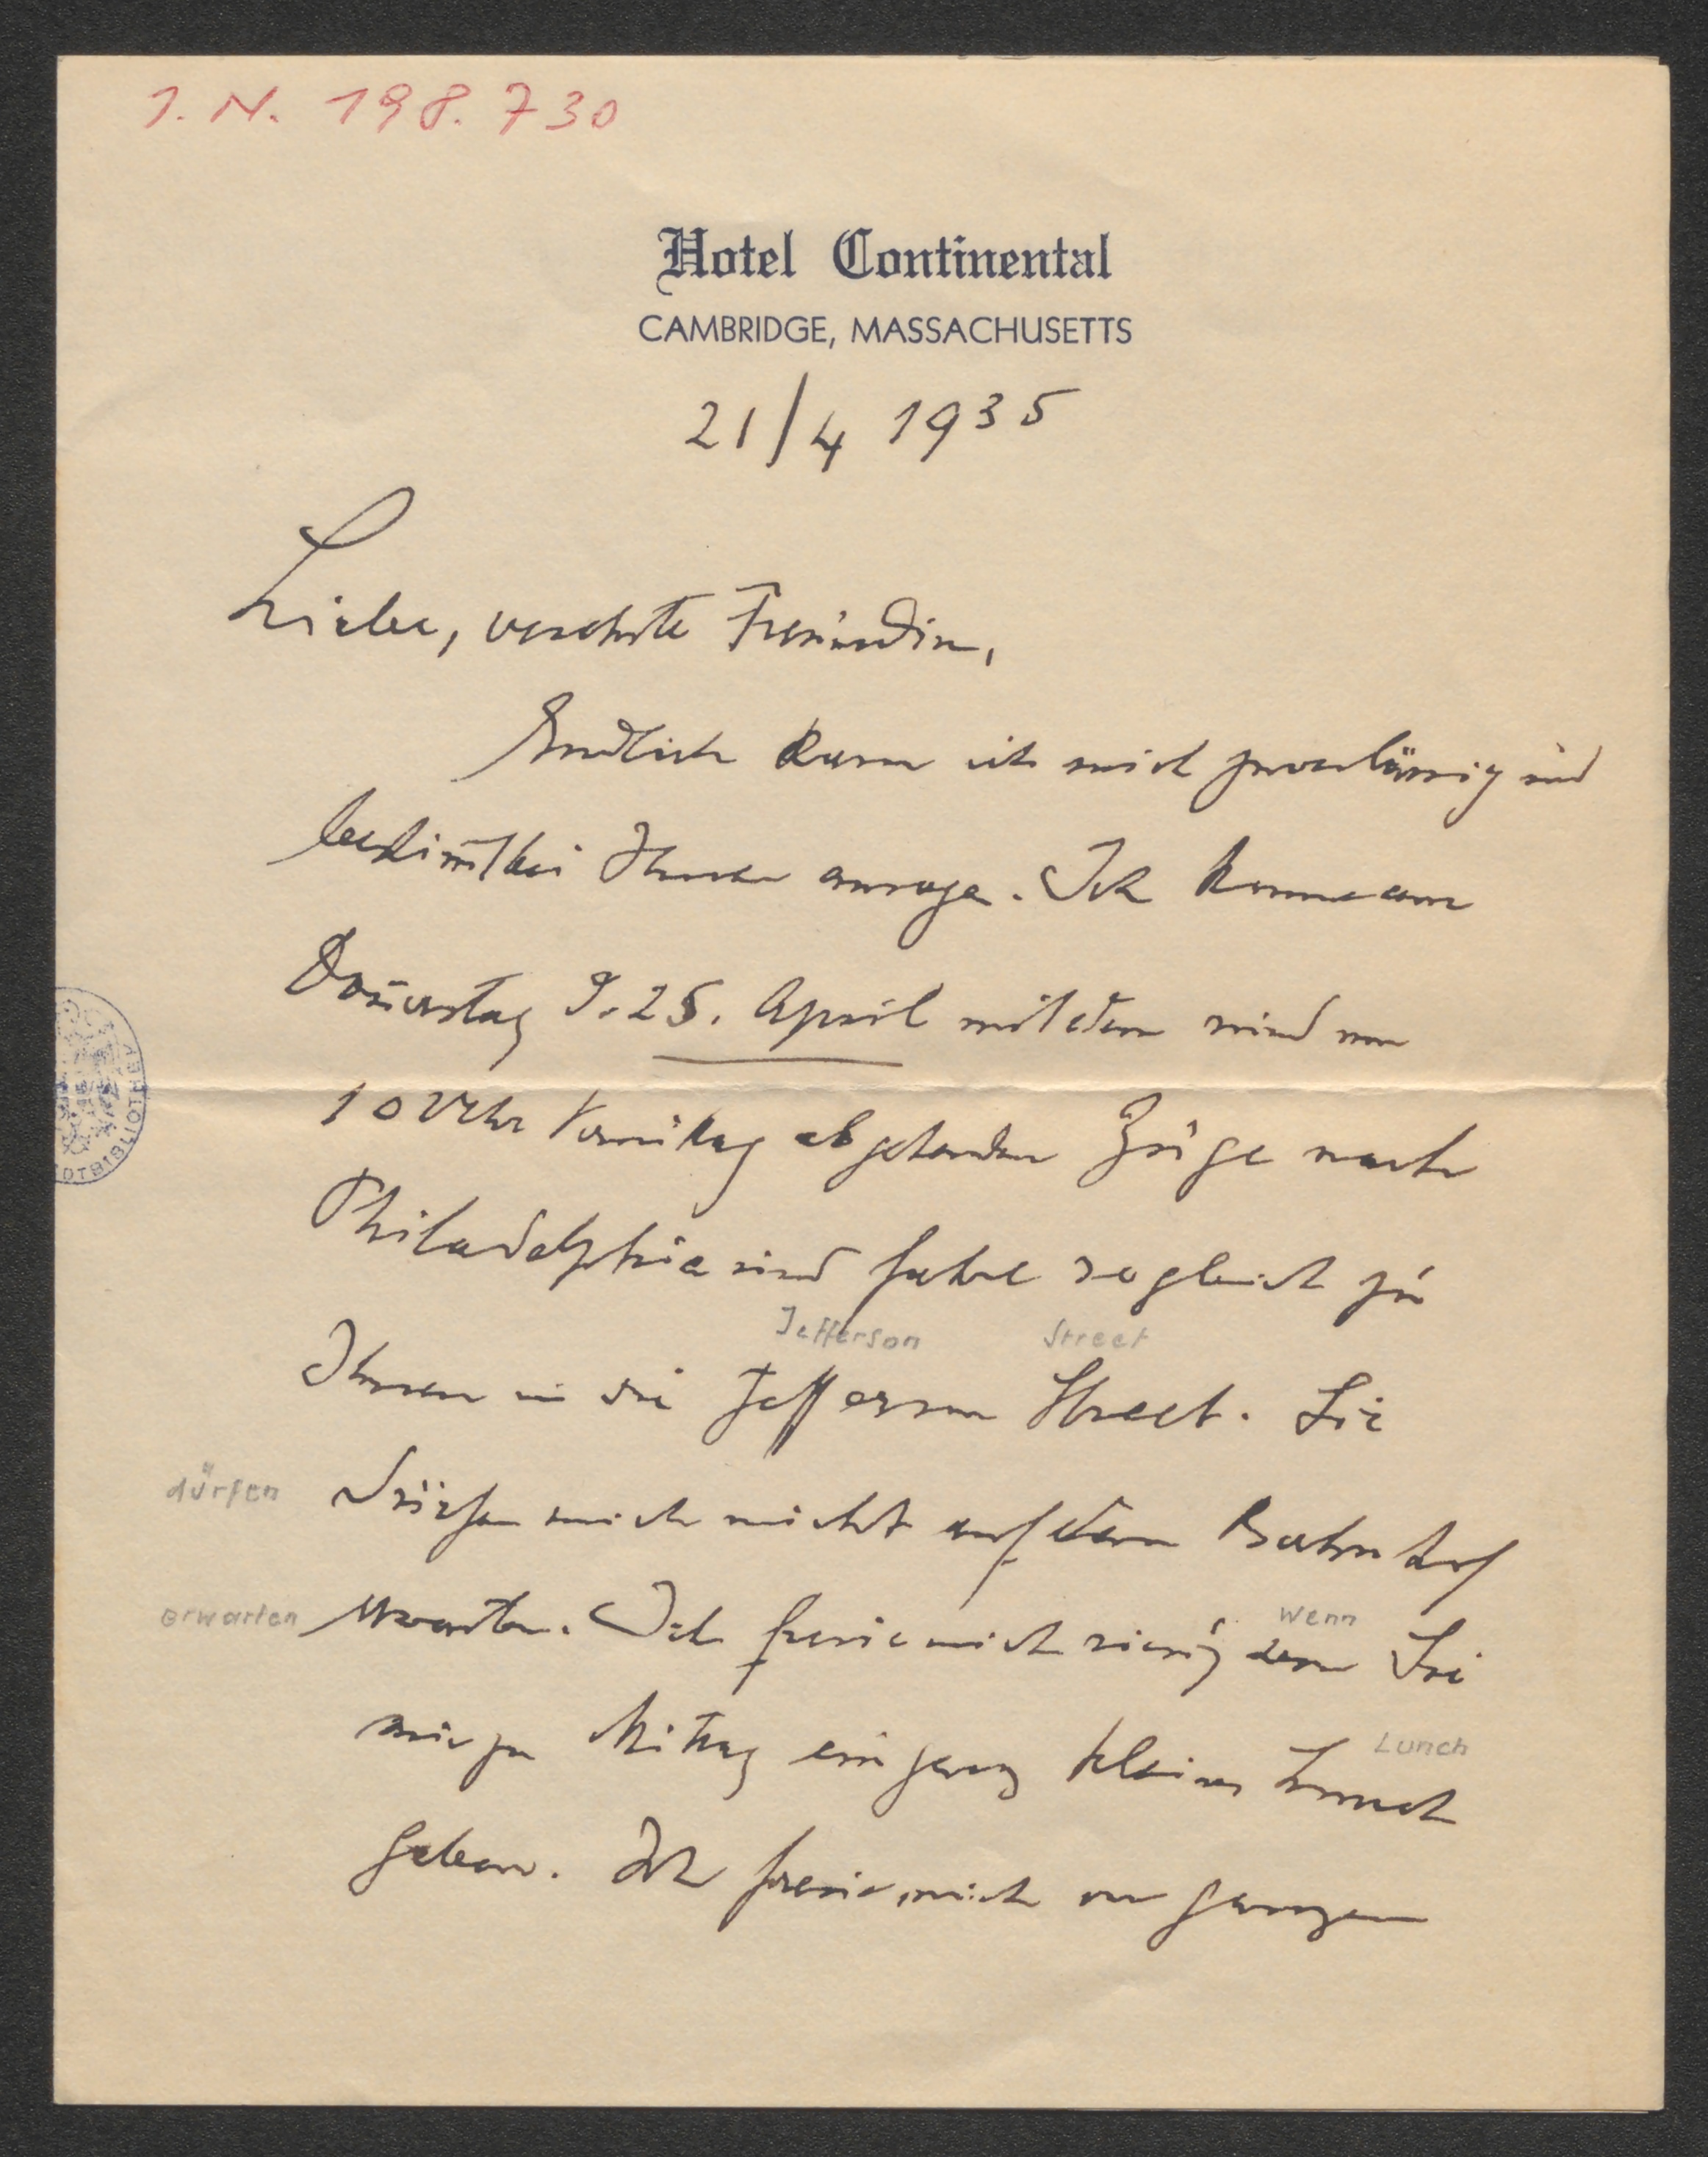 I. N. 198.730
Hotel Continental
CAMBRIDGE, MASSACHUSETTS
21/4 1935
Liebe, verehrte Freundin,
Endlich kann ich mich zuverlässig und
bestim̅t bei Ihnen ansagen. Ich komme am
Don̅erstag d. 25. April mit dem rund um
10 Uhr Vormittag abgehenden Zuge nach
Philadelphia und fahre sogleich zu
Jefferson Street
Ihnen in die Jefferson Street. Sie
dürfen dürfen mich nicht auf dem Bahnhof
erwarten erwarten. Ich freue mich riesig wenn wenn Sie
mir zu Mittag ein ganz kleines Lunch Lunch
geben. Ich freue mich von ganzem
DTBIBLIOTHEK